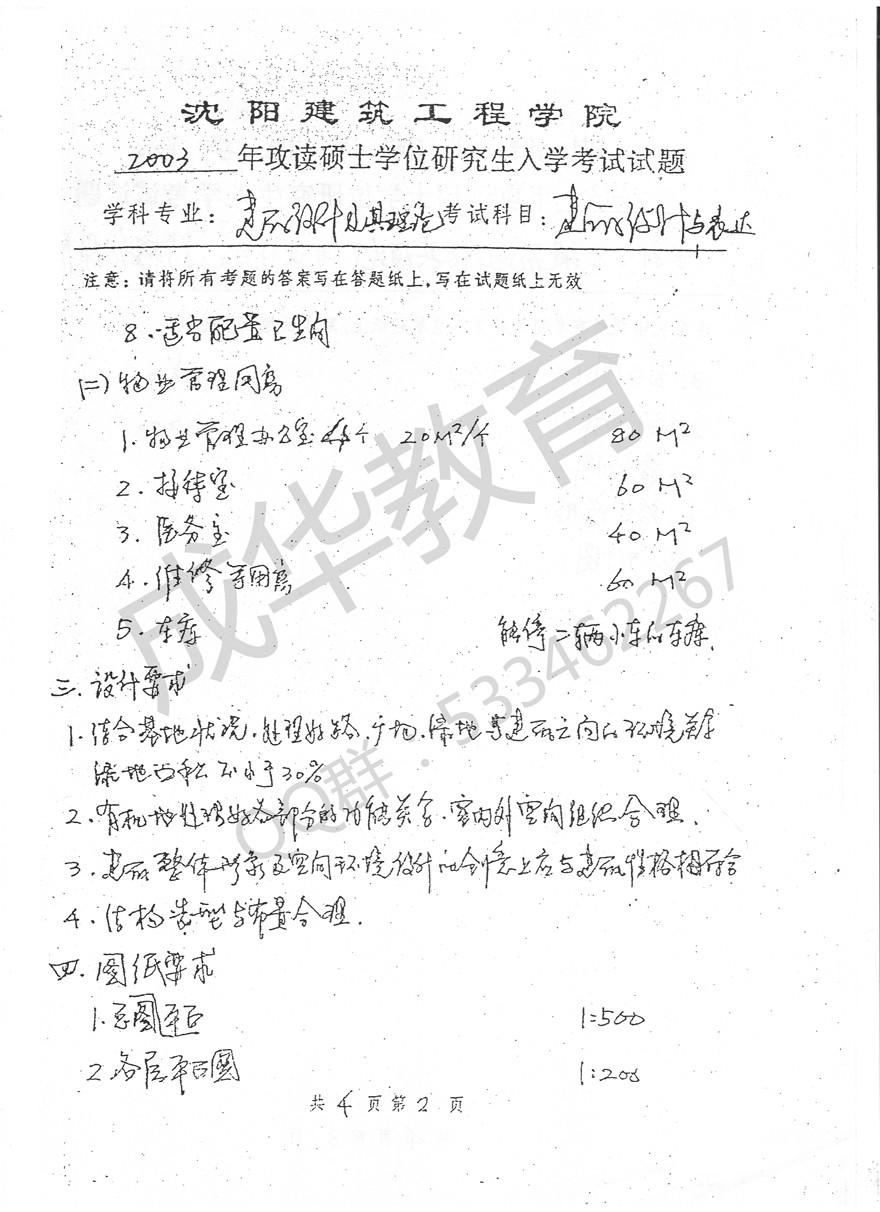 沈阳建筑工程学院
2003 年攻读硕士学位研究生入学考试试题
学科专业：建筑设计及其理论 考试科目：建筑设计与表达
注意：请将所有考题的答案写在答题纸上，写在试题纸上无效
8.适当配置卫生间
(二)物业管理用房
1.物业管理办公室4个 20M²/个 80 M²
2.接待室 60 M²
3.医务室 40 M²
4.维修等用房 60 M²
5.车库 能停二辆小车的车库.
三.设计要求
1.结合基地状况.处理好路.广场.绿地与建筑之间的环境关系
绿地面积不小于30%
2.有机地处理好各部分的功能关系.室内外空间组织合理.
3.建筑整体形象及空间环境设计的创意上应与建筑性格相符合
4.结构造型与布置合理.
四.图纸要求
1.总图平面 1:500
2.各层平面图 1:200
共 4 页第 2 页
成华教育
QQ群：533462267